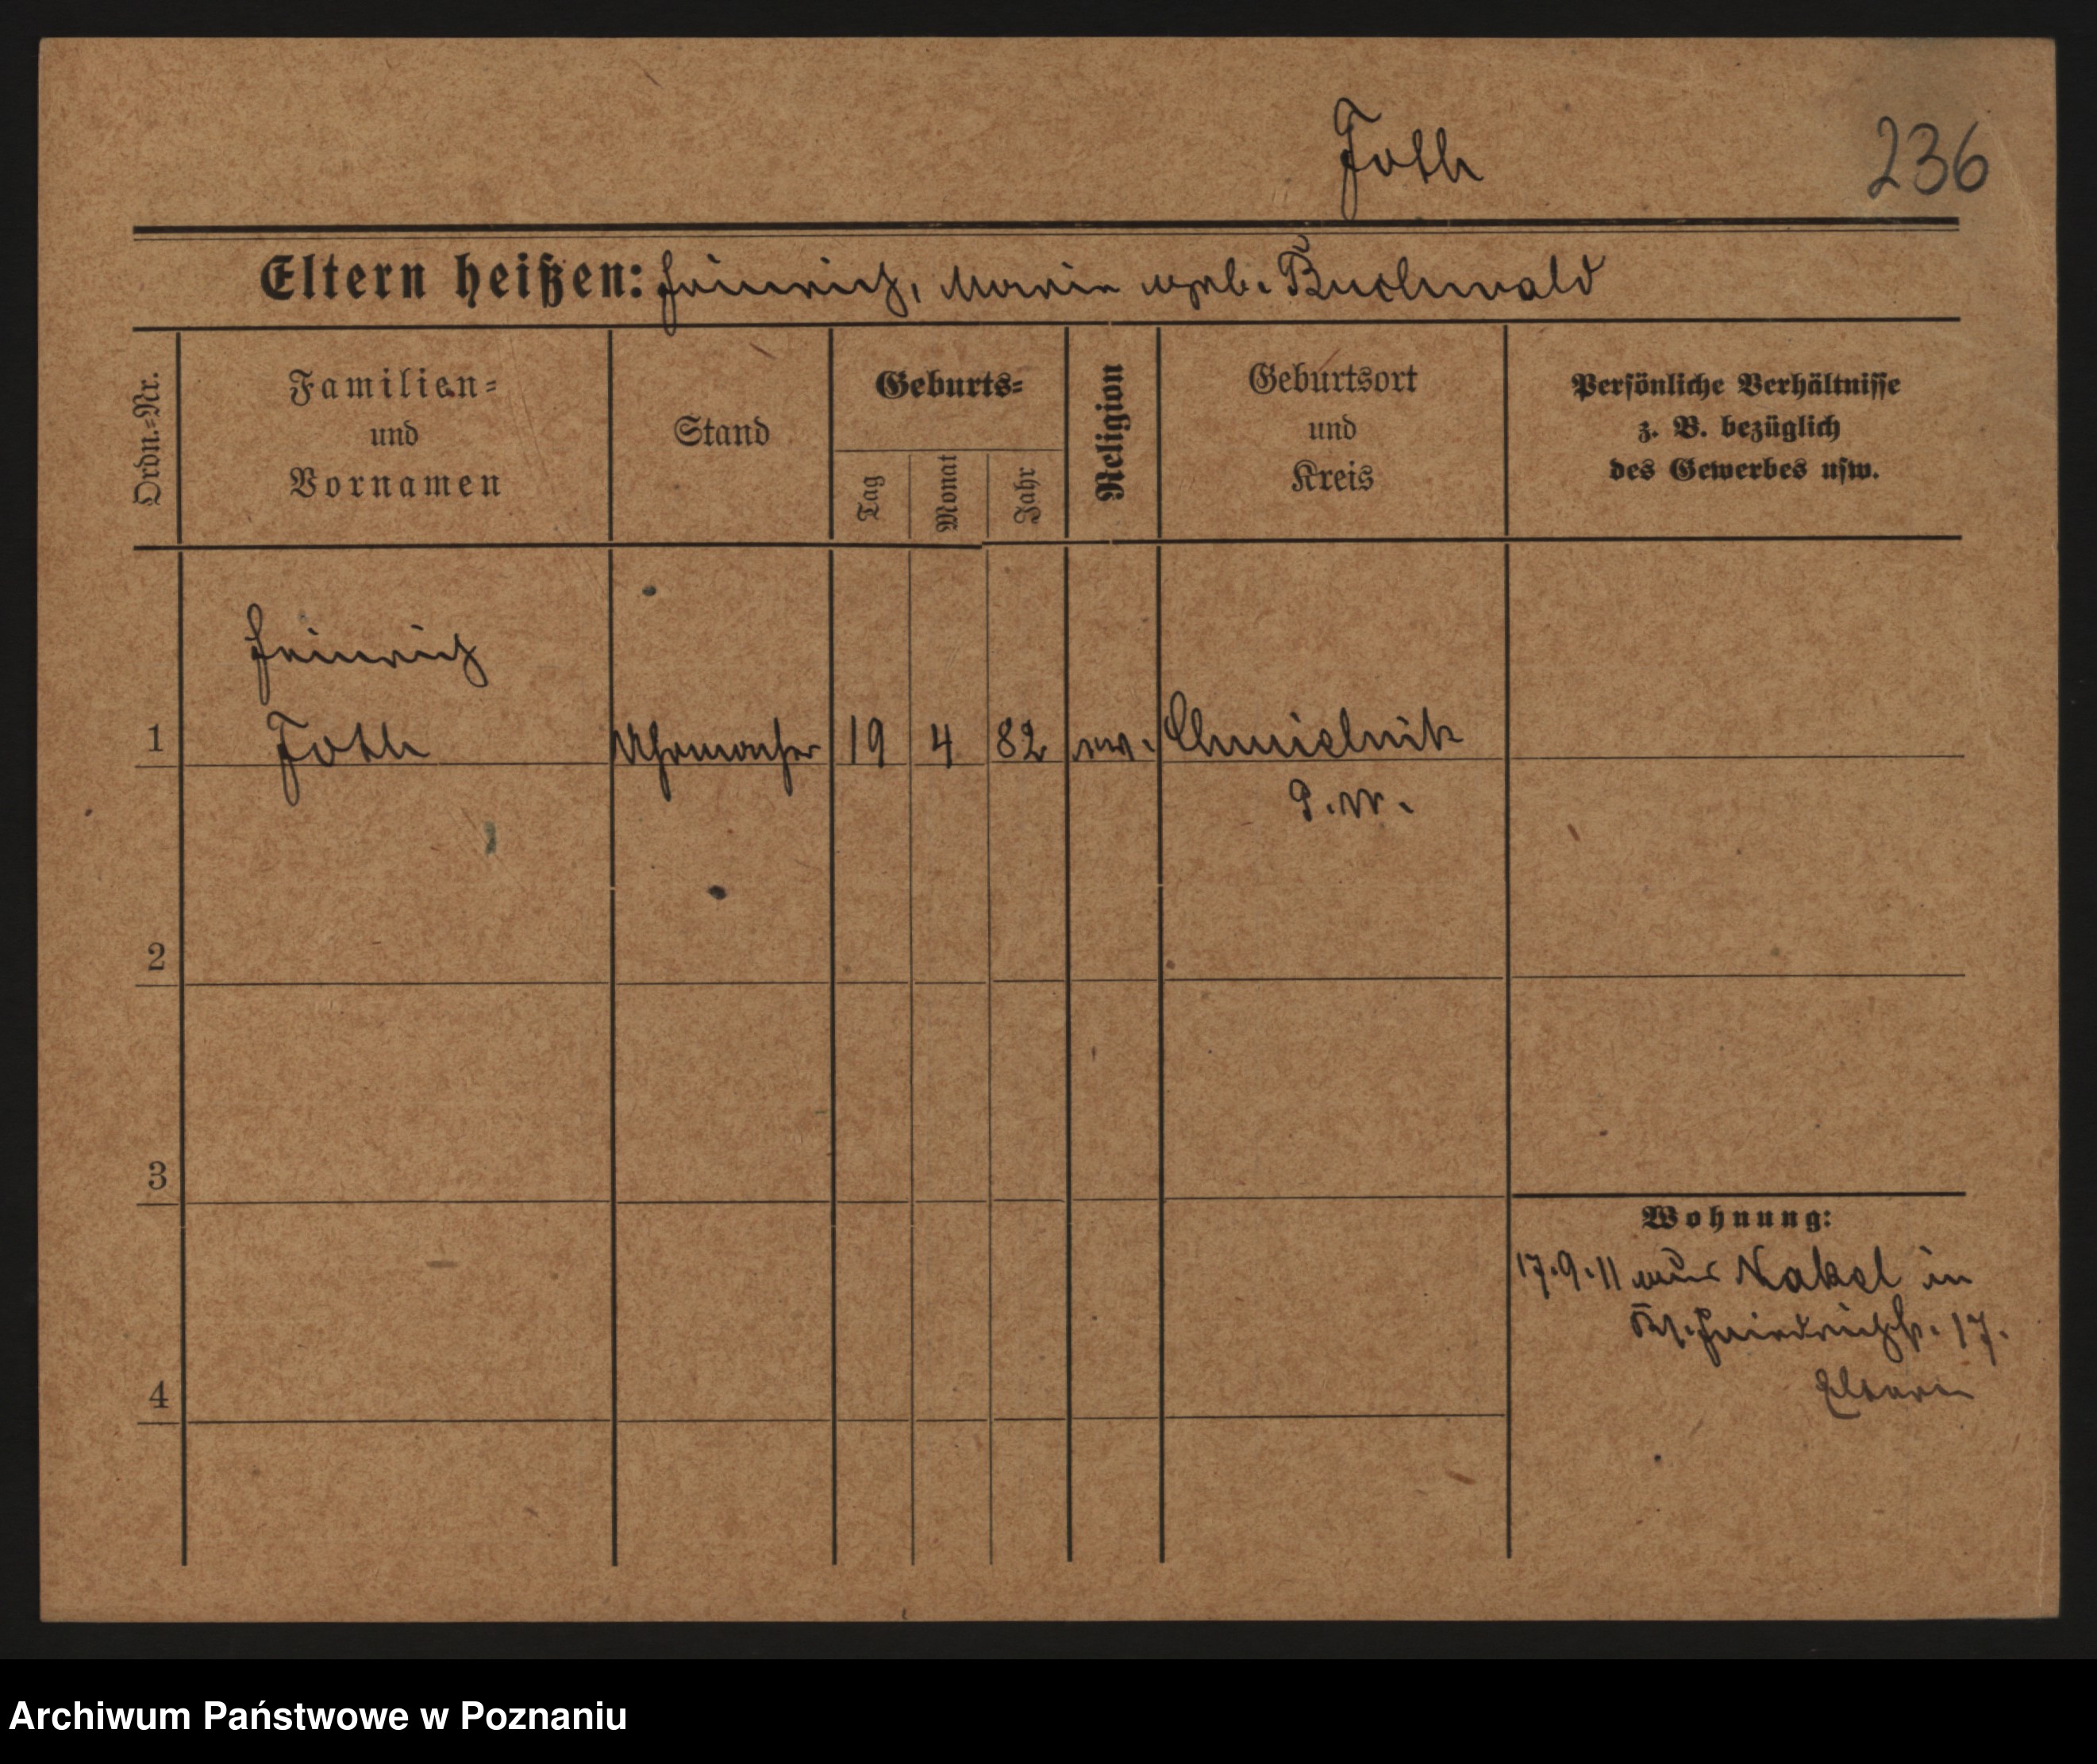 Foth
236
Eltern heißen: Heinrich, Marie geb. Buchwald
Ordn.-Nr.
Familien-
und
Vornamen
Stand
Geburts-
Tag
Monat
Jahr
Religion
Geburtsort
und
Kreis
Persönliche Verhältnisse
z. B. bezüglich
des Gewerbes usw.
Heinrich
1 Foth Uhrmacher 19 4 82 ev. Chmielnik
P. W.
2
3
Wohnung:
17.9.11 aus Nakel in
Friedrichstr. 17.
4
Eltern
Archiwum Państwowe w Poznaniu